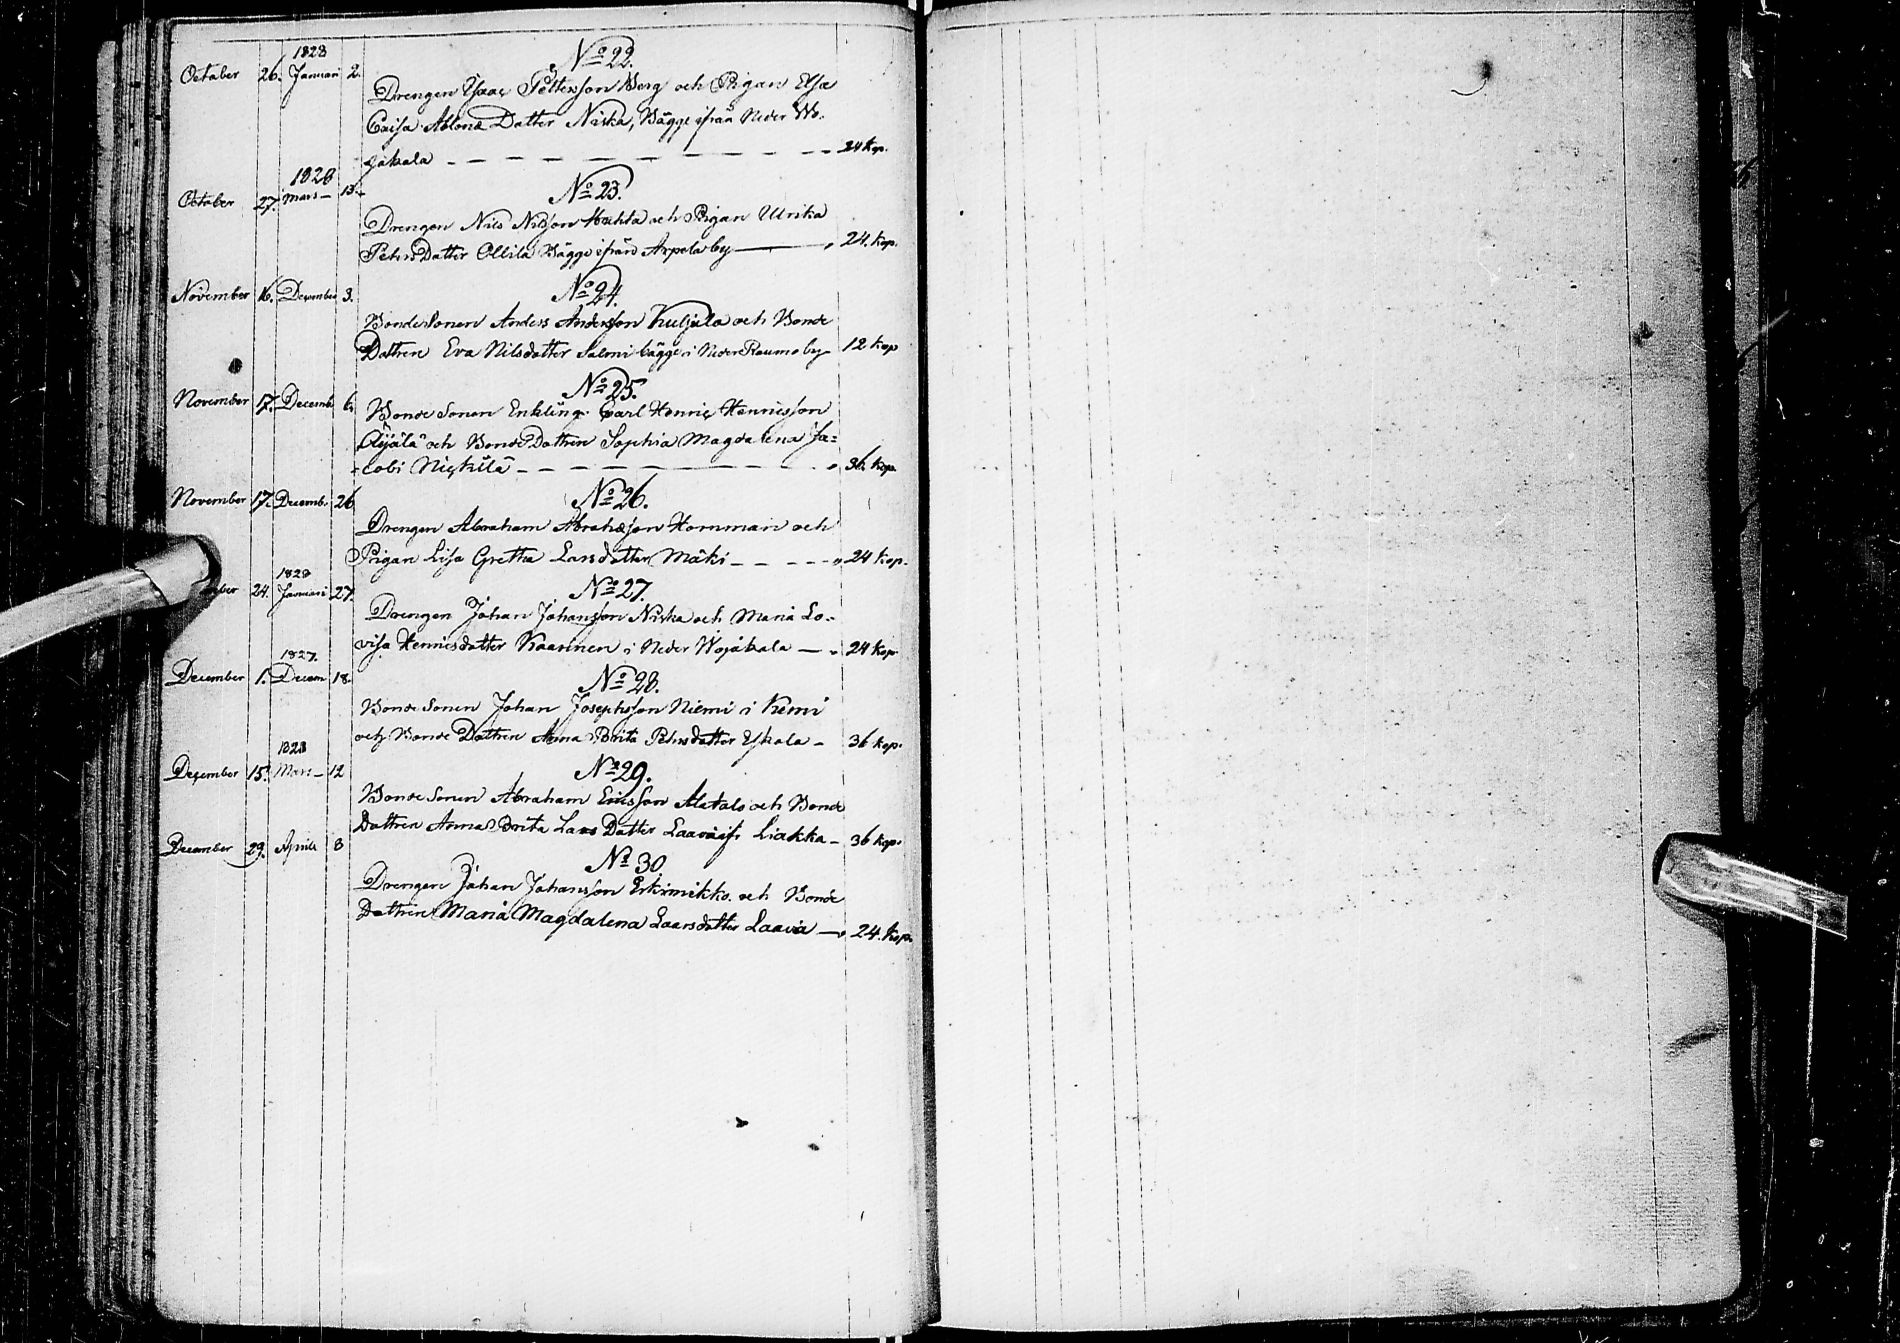 1828
October 26. Januari 2. No 22.
Drengen Isaac Pettersson Berg och Pigan Elsa
Caisa Ablons Datter Niska, Bägge ifrån Neder Wo-
jakala — — — — 24 Kop.
1828
October 27. Mars — 13. No 23.
Drengen Nils Nilsson och Pigan Ulrika
Pehrs Datter Ollila Bägge ifrån Arpela by — 24. Kop.
November 16. December 3. No 24.
Bonde Sonen Anders Andersson Kuljula och Bonde
Dottren Eva Nilsdotter Salmi bägge i Neder Raumo by 12 Kop
November 17. Decemb 6. No 25.
Bonde Sonen Enkling Carl Henric Henricsson
och Bonde Dottren Sophia Magdalena Ja=
=cobi — — — — 36. Kop.
November 17. Decemb. 26 No 26.
Drengen Abraham Abrahsson Homman och
Pigan Lisa Gretha Larsdotter Mäki — — — 24 Kop.
1828
ber 24. Januari 27. No 27.
Drengen Johan Johansson Niska och Maria Lo-
visa Henricsdotter Kaarinen i Neder Wojakala — 24 Kop
1827.
December 1. Decem 18. No 28.
Bonde Sonen Johan Josephsson Niemi i Kemi
och Bonde Dottren Anna Brita Pehrsdotter Yskala — 36 Kop.
1828
December 15. Mars — 12 No 29.
Bonde Sonen Abraham Ericsson Alatalo och Bonde
Dottren Anna Brita Lars Dotter Liakka — 36 Kop.
December 29. Aprile 8 No 30.
Drengen Johan Johansson Erkinmikko och Bonde
Dottren Maria Magdalena Laarsdotter Laavia — 24. Kop.